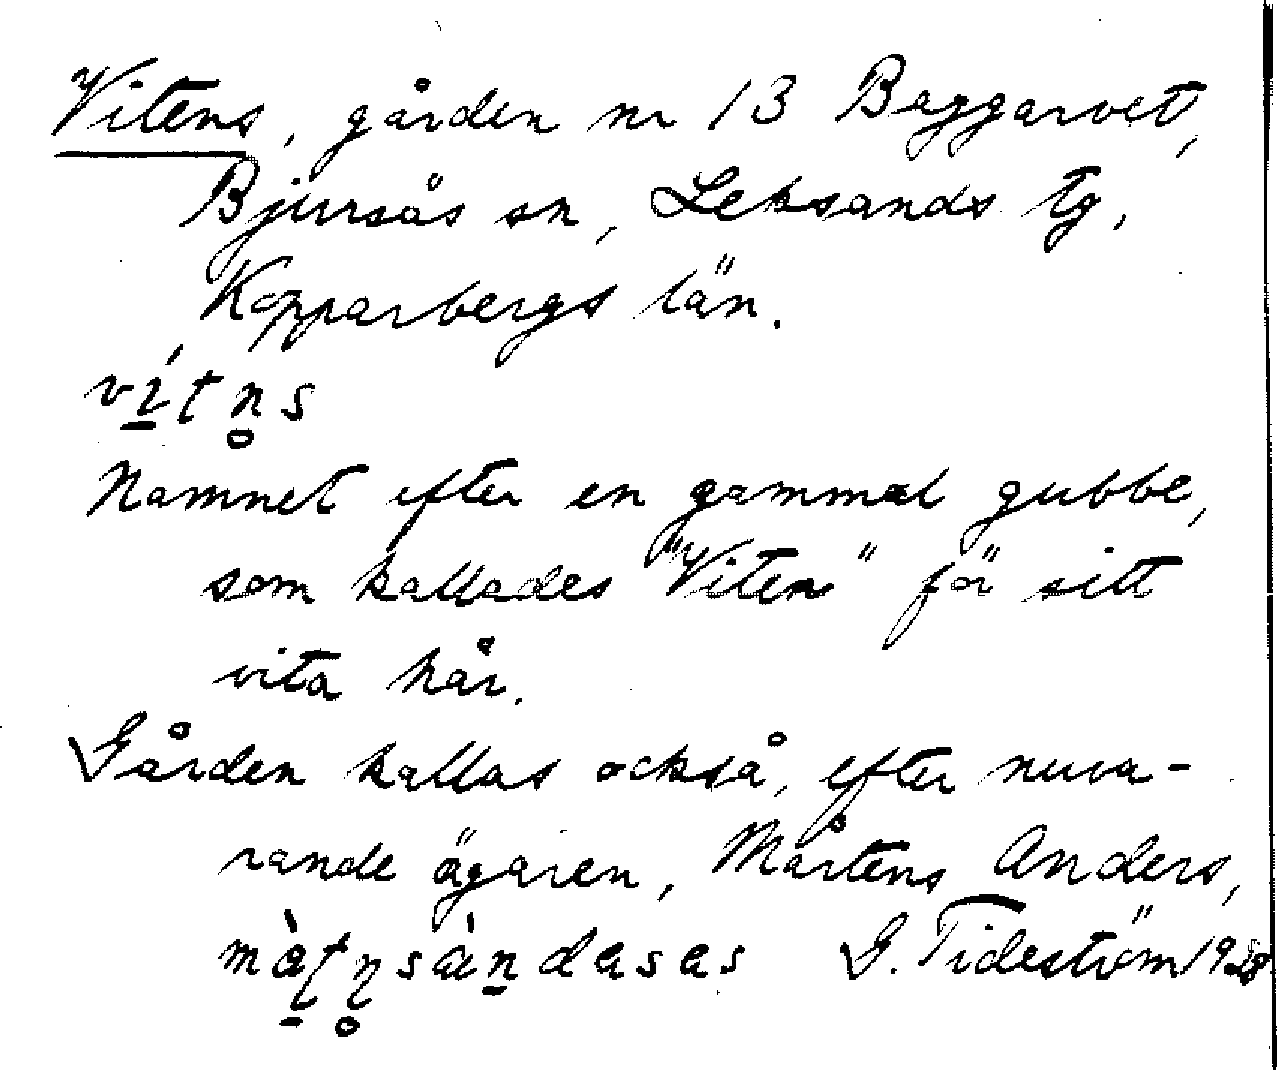 Vitens, gården nr 13 Baggarvet,
Bjursås sn, Leksands tg,
Kopparbergs län.
vítn̥s
Namnet efter en gammal gubbe,
som kallades "Viten" för sitt
vita hår.
Gården kallas också, efter nuva-
rande ägaren, Mårtens Anders,
G. Tideström